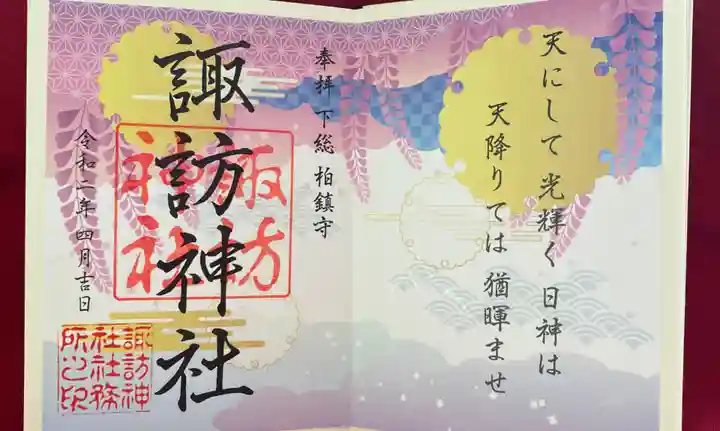 天にして光輝く日神は
天降りては猶暉ませ
奉拝 下総 柏鎮守
諏訪神社
令和二年四月吉日
諏訪
神社
諏訪神
社社務
所之印